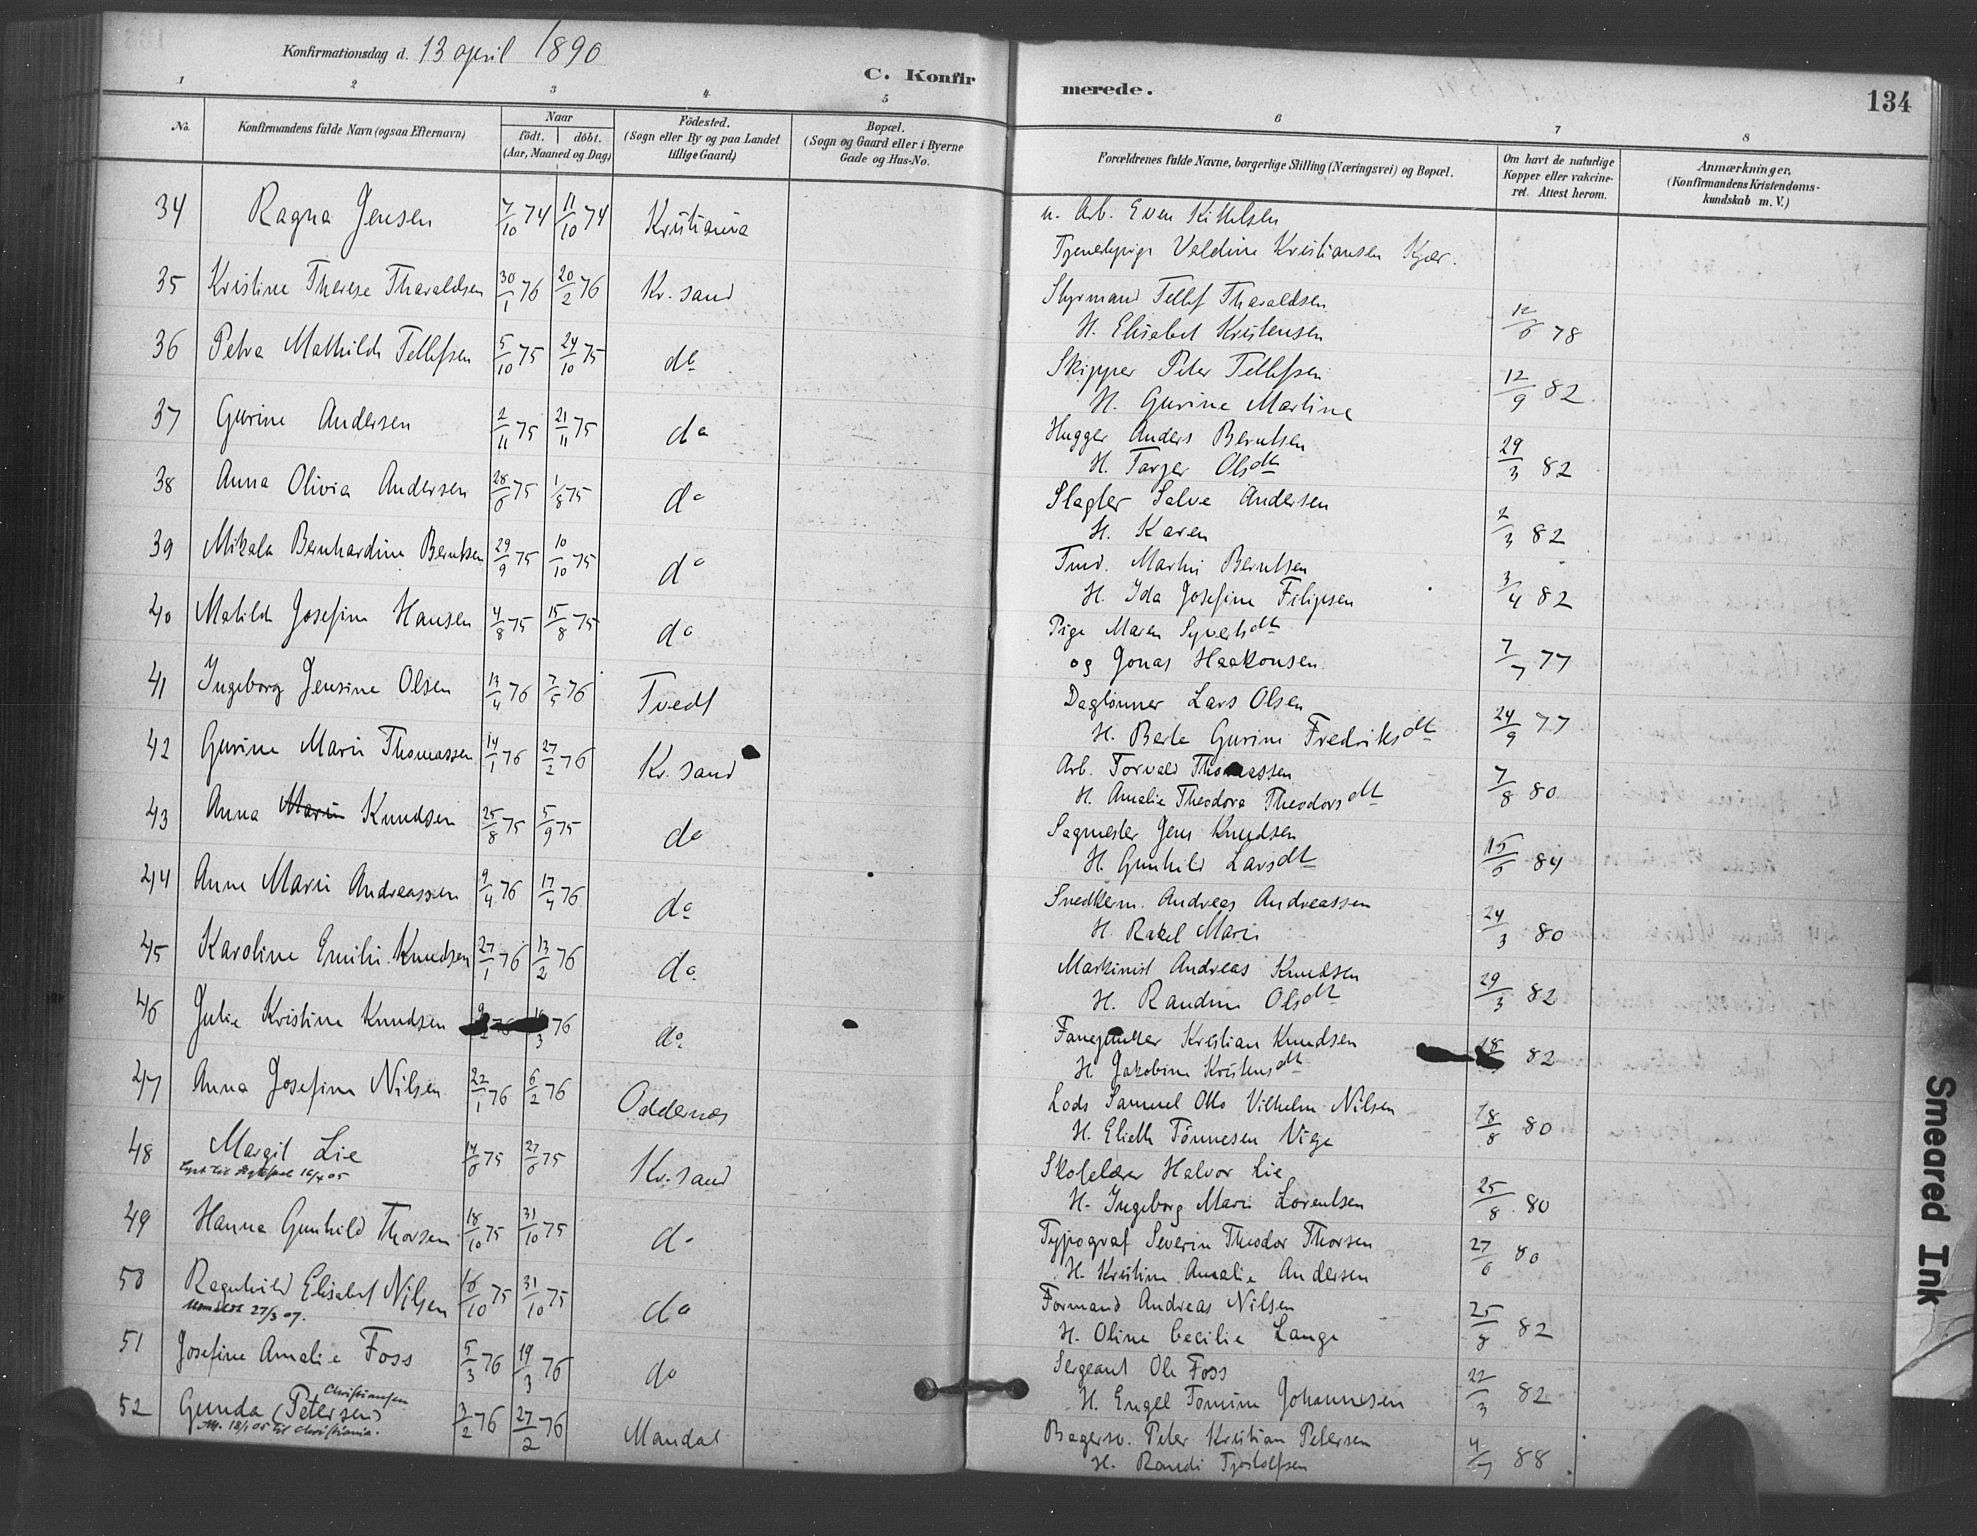 Konfirmationsdag d. 13 april 1890
C. Konfir merede. 134
1 2 3 4 5 6 7 8
No. Konfirmandens fulde Navn (ogsaa Efternavn) Naar født. døbt. (Aar, Maaned og Dag) Födested. (Sogn eller By og paa Landet tillige Gaard) Bopæl. (Sogn og Gaard eller i Byerne Gade og Hus-No. Forældrenes fulde Navne, borgerlige Stilling (Næringsvei) og Bopæl. Om havt de naturlige Kopper eller vakcineret. Attest herom. Anmærkninger, (Konfirmandens Kristendomskundskab m. V.)
34 Ragna Jensen 7/10 74 11/10 74 Kristiania u. Arb. Even Kittelsen
Tjenestepige Valdine Kristiansen Kjær.
35 Kristine Therese Tharaldsen 30/1 76 20/2 76 Kr. sand Styrmand Tellef Tharaldsen
H. Elisabet Kristensen 12/6 78
36 Petra Mathilde Tellefsen 5/10 75 24/10 75 do Skipper Peter Tellefsen
H. Gurine Martine 12/9 82
37 Gurine Andersen 2/11 75 21/11 75 do Hugger Anders Berntsen
H. Tarjer Olsdt 29/3 82
38 Anna Olivia Andersen 28/6 75 1/8 75 do Slagter Salve Andersen
H. Karen 2/3 82
39 Mikala Bernhardine Berntsen 29/9 75 10/10 75 do Tmd. Martin Berntsen
H. Ida Josefine Filipsen 3/4 82
40 Matilde Josefine Hansen 4/8 75 15/8 75 do Pige Maren Syvertsdt
og Jonas Haakonsen 7/7 77
41 Ingeborg Jensine Olsen 13/4 76 7/5 76 Tvedt Daglønner Lars Olsen
H. Berte Gurine Fredriksdt 24/9 77
42 Gurine Marie Thomassen 14/1 76 27/2 76 Kr. sand Arb. Torvald Thomassen
H. Amalie Theodora Theodorsdt 7/8 80
43 Anna Marie Knudsen 25/8 75 5/9 75 do Sagmester Jens Knudsen
H. Gunhild Larsdt 15/6 84
44 Anne Marie Andreassen 9/4 76 17/4 76 do Snedkerm. Andreas Andreassen
H. Rakel Marie 24/3 80
45 Karoline Emilie Knudsen 27/1 76 13/2 76 do Maskinist Andreas Knudsen
H. Randine Olsdt 29/3 82
46 Julie Kristine Knudsen 76 do Kristian Knudsen
H. Jakobine Kristensdt 18 82
47 Anna Josefine Nilsen 22/1 76 6/2 76 Oddernes Lods Samuel Otto Vilhelm Nilsen
H. Elieth Tönnesen Vige 18/8 80
48 Margit Lie 14/6 75 27/6 75 Kr. sand Skolelærer Halvor Lie
H. Ingeborg Marie Lorentsen 25/8 80
49 Hanna Gunhild Thorsen 18/10 75 31/10 75 do Typograf Severin Theodor Thorsen
H. Kristine Amalie Andersen 27/6 80
50 Ragnhild Elisabet Nilsen 16/10 75 31/10 75 do Formand Andreas Nilsen
27/3 07. H. Oline Cecilie Lange 25/8 82
51 Josefine Amalie Foss 5/3 76 19/3 76 do Sergeant Ole Foss
H. Engel Tomine Johannesen 22/3 82
Christiansen
52 Gunda (Petersen) 3/2 76 27/2 76 Mandal Bagersv. Peter Kristian Petersen
18/1 05 til Christiania. H. Randi Tjostolfsen 4/7 88
Smeared Ink